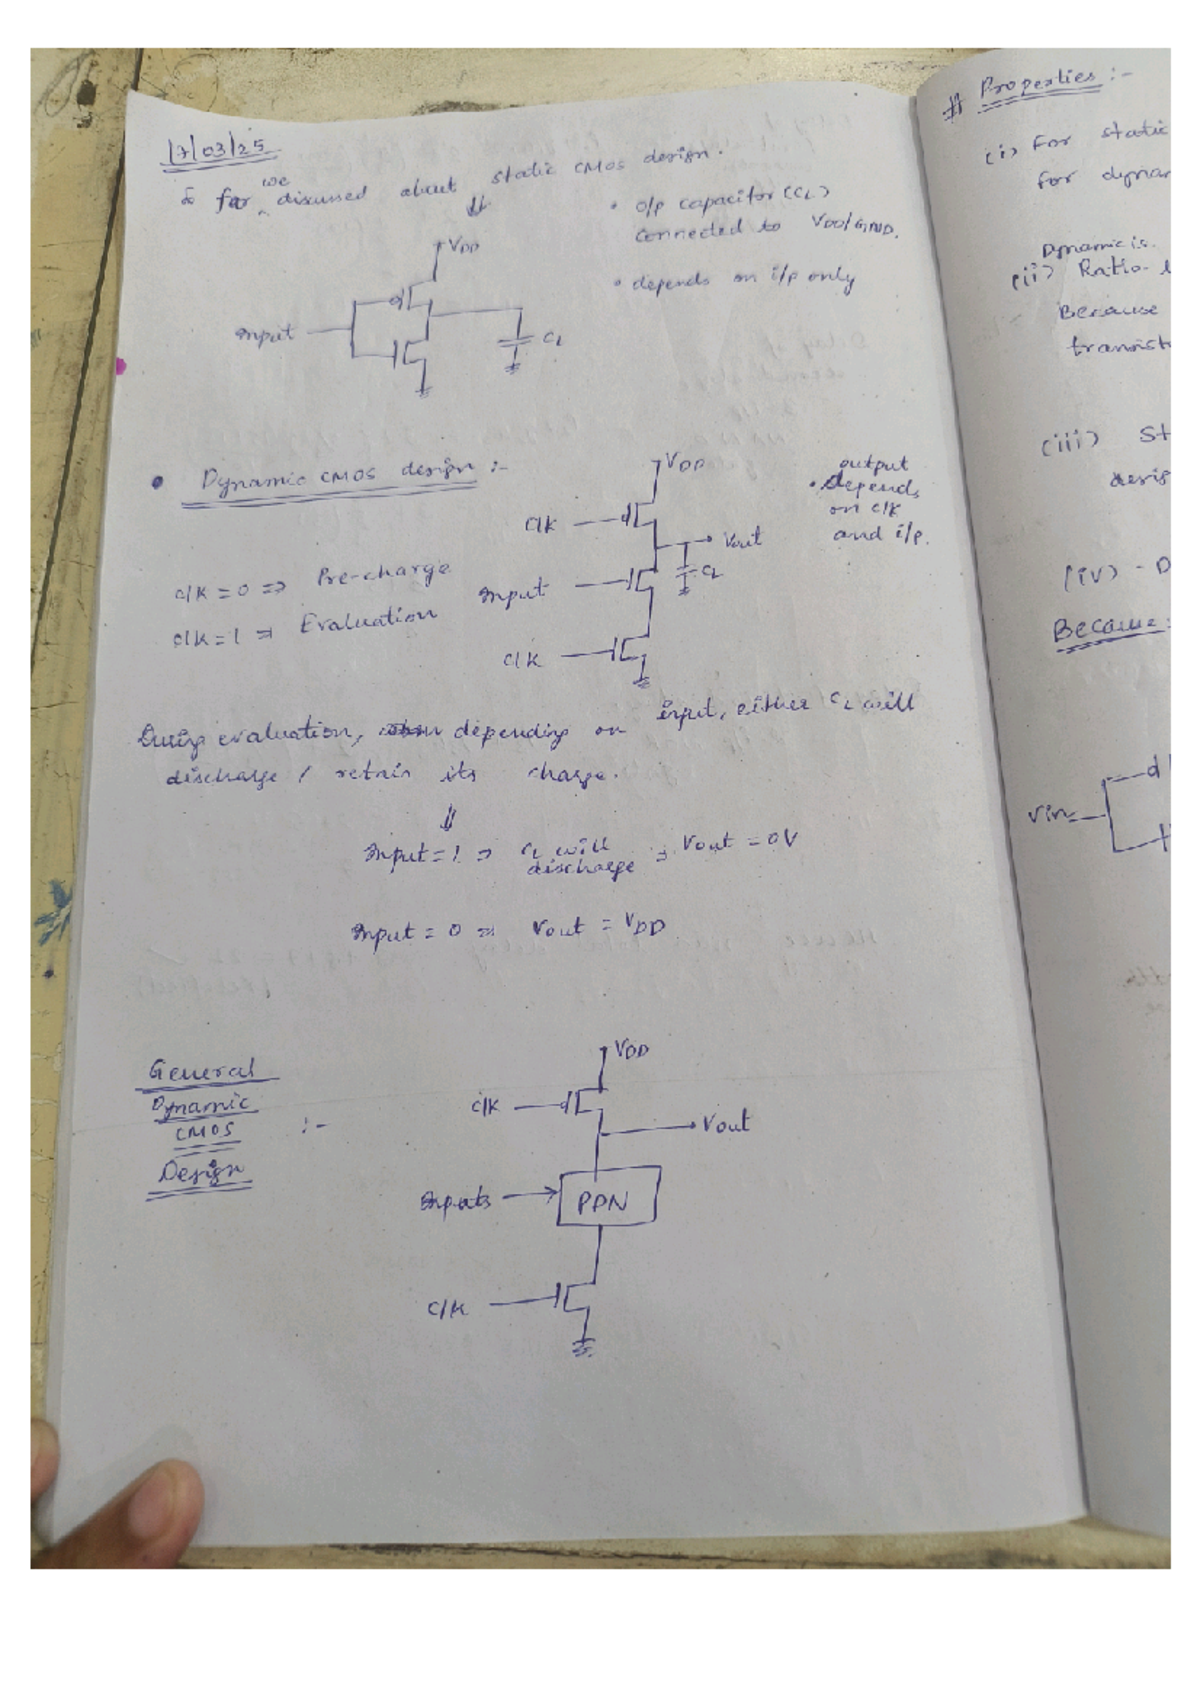 17/03/25
So far we discussed about static CMOS design.
• o/p capacitor (CL)
connected to VDD/GND.
• depends on i/p only
VDD
Input
CL
• Dynamic CMOS design :-
VDD
output
• depends
on clk
and i/p.
clk
Vout
CL
Input
clk
clk = 0 => Pre-charge
clk = 1 => Evaluation
During evaluation, depending on input, either CL will
discharge / retain its charge.
Input = 1 => CL will discharge => Vout = 0V
Input = 0 => Vout = VDD
General
Dynamic
CMOS :-
Design
VDD
clk
Vout
Inputs
PDN
clk
# Properties :-
(i) For static
For
Dynamic is
(ii) Ratio-
Because
(iii)
(iv) -
Because
Vin